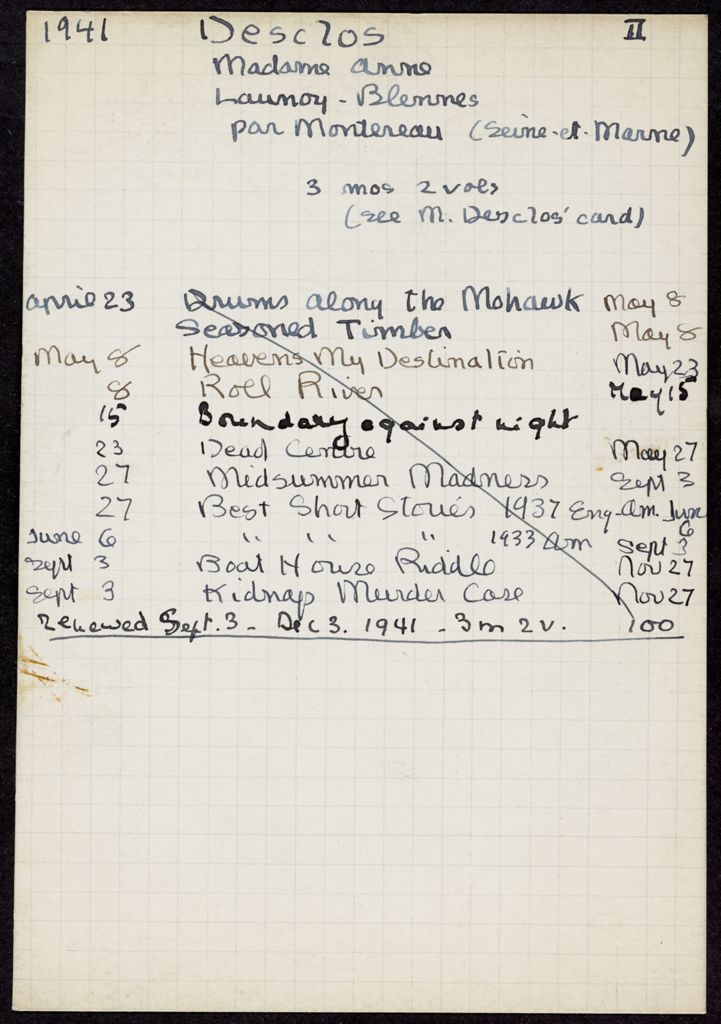 1941 Desclos II
Madame Anne
Launoy - Blennes
par Montereau (Seine-et-Marne)
3 mos 2 vols
(see M. Desclos' card)
april 23 Drums along the Mohawk May 8
Seasoned Timber May 8
May 8 Heavens My Destination May 23
8 Roll River May 15
15 Boundary against night
23 Dead Centre May 27
27 Midsummer Madness Sept 3
27 Best Short Stories 1937 Eng-Am. June 6
June 6 " " " 1933 Am Sept 3
Sept 3 Boat House Riddle Nov 27
Sept 3 Kidnap Murder Case Nov 27
renewed Sept. 3 - Dec 3. 1941 - 3 m 2 v. 100